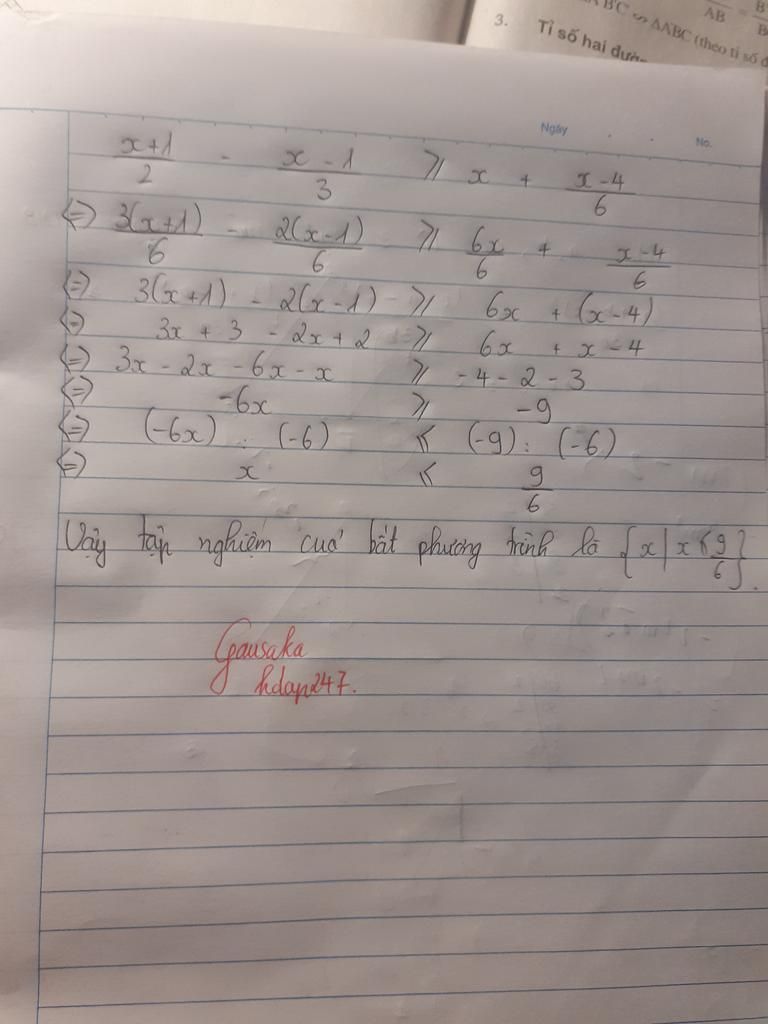 A'B'C' ∽ ΔABC (theo tỉ số đ
AB = B
3. Tỉ số hai đườn
Ngày . . No.
(x+1)/2 - (x-1)/3 ≥ x + (x-4)/6
<=> 3(x+1)/6 - 2(x-1)/6 ≥ 6x/6 + (x-4)/6
<=> 3(x+1) - 2(x-1) ≥ 6x + (x-4)
<=> 3x + 3 - 2x + 2 ≥ 6x + x - 4
<=> 3x - 2x - 6x - x ≥ -4 - 2 - 3
<=> -6x ≥ -9
<=> (-6x) : (-6) ≤ (-9) : (-6)
<=> x ≤ 9/6
Vậy tập nghiệm cuả bất phương trình là {x | x ≤ 9/6}.
Gausaka
hdap247.